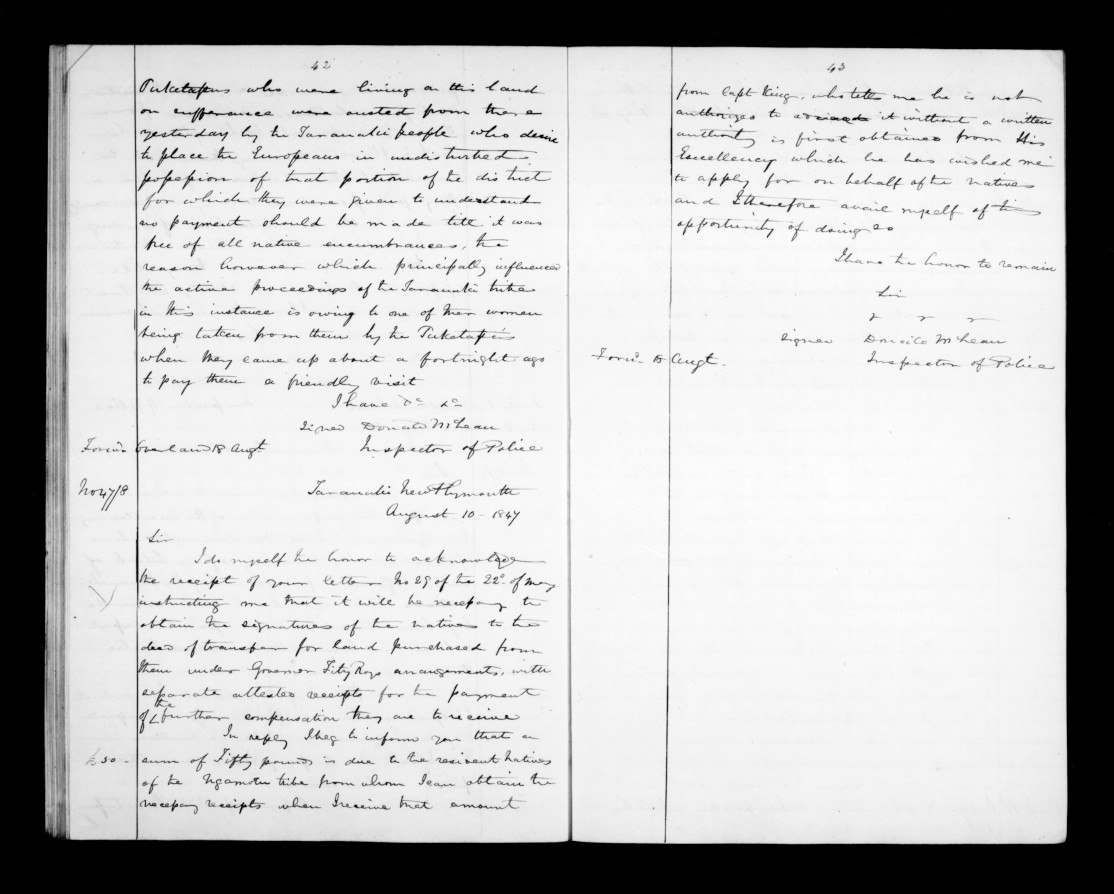 42
Puketapus who were living on this land
on sufferance were ousted from there
yesterday by the Taranaki people who desire
to place the Europeans in undisturbed
possession of that portion of the district
for which they were given to understand
no payment should be made till it was
free of all native encumbrances, the
reason however which principally influenced
the active proceedings of the Taranaki tribe
in this instance is owing to one of their women
being taken from them by the Puketapus
when they came up about a fortnight ago
to pay them a friendly visit
I have &c &c
signed Donald McLean
Forwd. Overland 18 Augt. Inspector of Police
No 47/8 Taranaki New Plymouth
August 10 - 1847
Sir
I do myself the honor to acknowledge
the receipt of your letter No 29 of the 22d. of May
instructing me that it will be necessary to
obtain the signatures of the natives to the
deed of transfer for land purchased from
them under Governor FitzRoys arrangements, with
separate attested receipts for the payment
of the further compensation they are to receive
In reply I beg to inform you that a
£50 - sum of Fifty pounds is due to the resident Natives
of the Ngamotu tribe from whom I can obtain the
necessary receipts when I receive that amount
43
from Capt King, who tells me he is not
authorized to it without a written
authority is first obtained from His
Excellency which he has wished me
to apply for on behalf of the natives
and I therefore avail myself of this
opportunity of doing so
I have the honor to remain
Sir
signed Donald McLean
Forwd. 18 Augt. Inspector of Police